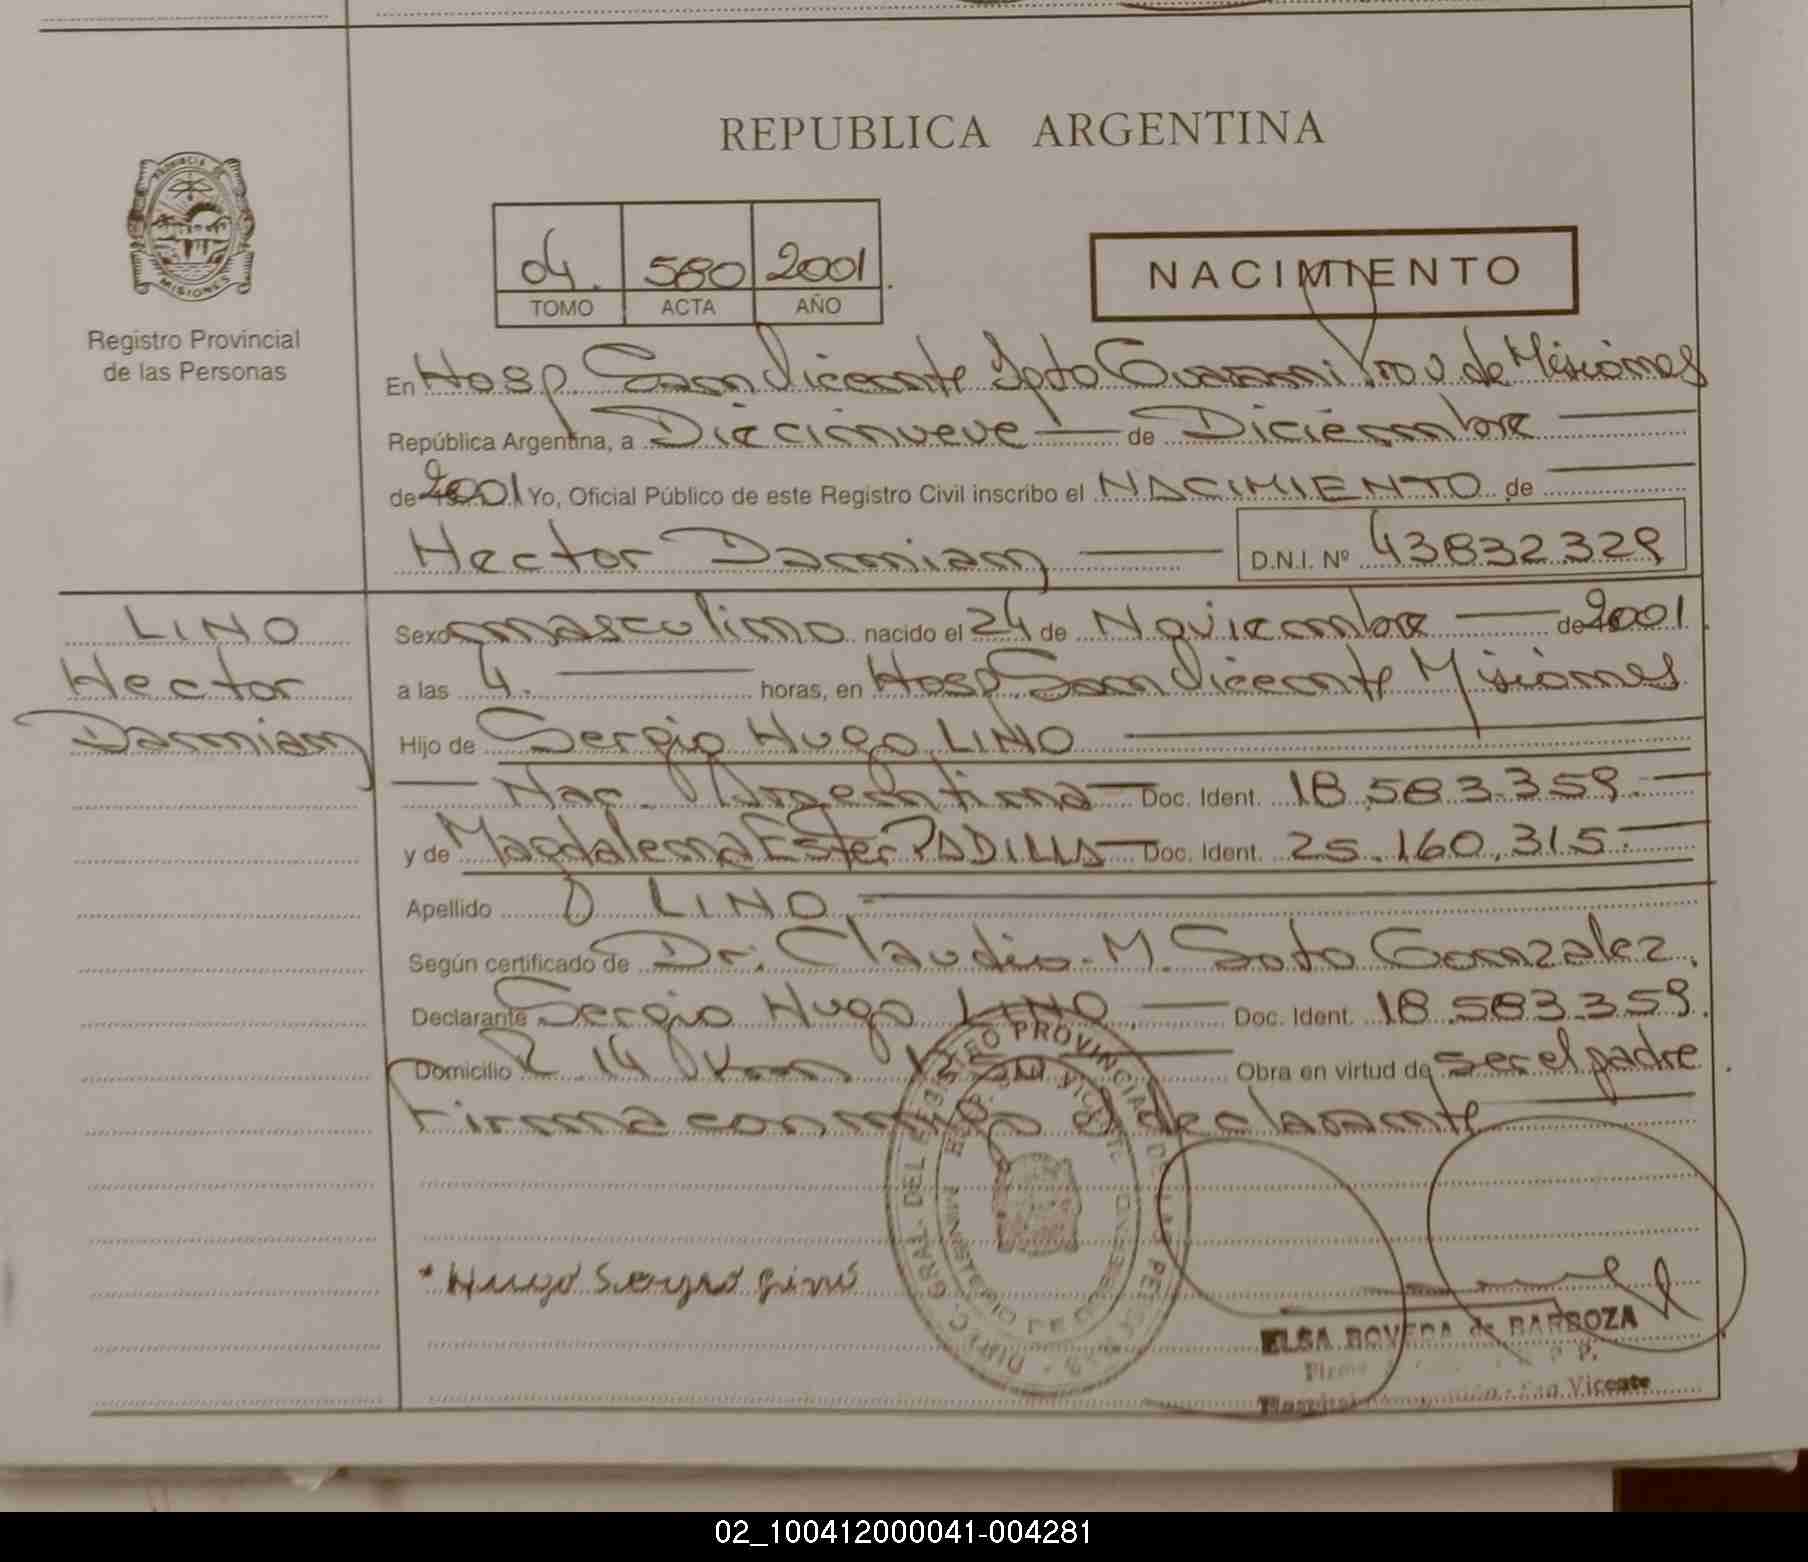 REPUBLICA ARGENTINA
PROVINCIA DE
MISIONES
Registro Provincial
de las Personas
04. 580 2001.
TOMO ACTA AÑO
NACIMIENTO
En Hosp San Vicente Dpto Guarani Prov de Misiones
República Argentina, a Diecinueve — de Diciembre —
de 2001 Yo, Oficial Público de este Registro Civil inscribo el NACIMIENTO de —
Hector Damian — D.N.I. Nº 43832329
LINO
Hector
Damian
Sexo masculino nacido el 24 de Noviembre — de 2001
a las 4. — horas, en Hosp San Vicente Misiones
Hijo de Sergio Hugo LINO —
— Nac. Argentina — Doc. Ident. 18.583.359. —
y de Magdalena Ester PADILLA — Doc. Ident. 25.160.315 —
Apellido LINO —
Según certificado de Dr. Claudio M. Soto Gonzalez.
Declarante Sergio Hugo LINO. — Doc. Ident. 18.583.359.
Domicilio R 14 Km 1250 — Obra en virtud de ser el padre.
Firma conmigo el declarante —
Hugo Sergio Lino
DIREC. GRAL. DEL REGISTRO PROVINCIAL DE LAS PERSONAS
HOSP. SAN VICENTE
MINISTERIO DE GOBIERNO
ELSA BOVEDA de BARBOZA
Firma
Hospital San Vicente
02_100412000041-004281